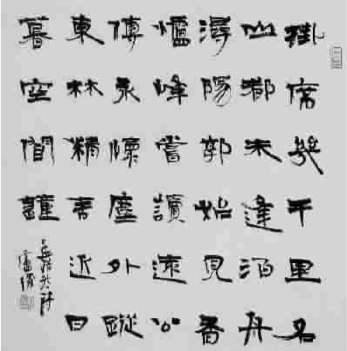 掛席幾千里名
山都未逢泊舟
潯陽郭始見香
爐峰嘗讀遠公
傳永懷塵外蹤
東林精舍近日
暮空聞鐘
孟浩然詩